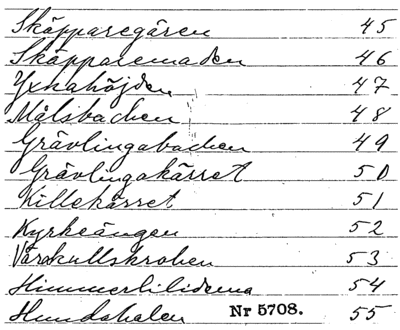 Skäpparegären 45
Skäpparemaden 46
Yxnahöjden 47
Målsbacken 48
Grävlingabacken 49
Grävlingakärret 50
Killekärret 51
Kyrkeängen 52
Vårakullskroken 53
Himmerhiliderna 54
Hundahalen Nr 5708. 55